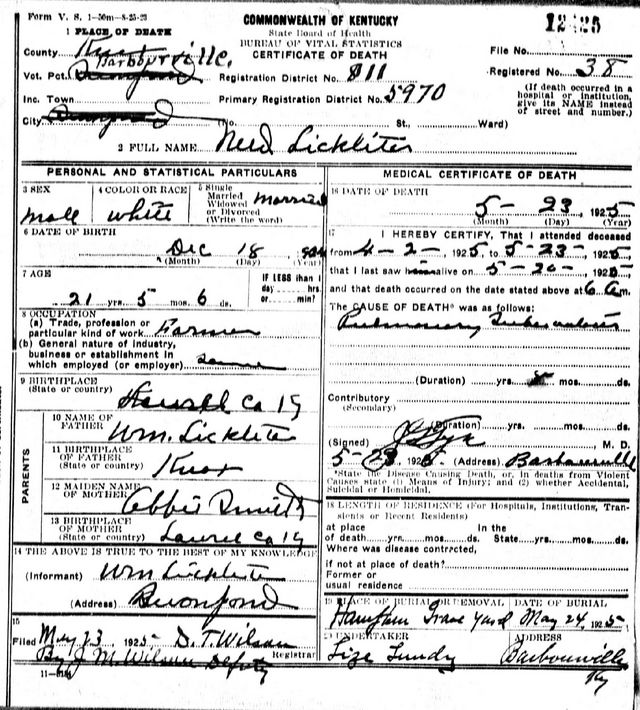 Form V. S. 1-50m-8-25-23
COMMONWEALTH OF KENTUCKY
State Board of Health
BUREAU OF VITAL STATISTICS
CERTIFICATE OF DEATH
1 PLACE OF DEATH
County Knox
Barbourville.
File No.
Vot. Pct.
Registration District No. 811
Registered No. 38
Inc. Town
Primary Registration District No. 5970
(If death occurred in a hospital or institution, give its NAME instead of street and number.)
City (No. St., Ward)
2 FULL NAME Lickliter
PERSONAL AND STATISTICAL PARTICULARS
3 SEX
Male
4 COLOR OR RACE
White
5 Single Married Widowed or Divorced (Write the word)
Married
6 DATE OF BIRTH
Dec 18
(Month) (Day) (Year)
7 AGE
21 yrs. 5 mos. 6 ds.
IF LESS than 1 day hrs. or min?
8 OCCUPATION
(a) Trade, profession or particular kind of work Farmer
(b) General nature of industry, business or establishment in which employed (or employer) same
9 BIRTHPLACE
(State or country) Co Ky
PARENTS
10 NAME OF FATHER Wm. Lickliter
11 BIRTHPLACE OF FATHER
(State or country) Knox
12 MAIDEN NAME OF MOTHER Abbie Smith
13 BIRTHPLACE OF MOTHER
(State or country) Laurel Co Ky
14 THE ABOVE IS TRUE TO THE BEST OF MY KNOWLEDGE
(Informant) Wm Lickliter
(Address)
15
Filed May 23 1925 D. T. Wilson
Registrar
By J. M. Wilson Deputy
11-3184
MEDICAL CERTIFICATE OF DEATH
16 DATE OF DEATH
5- 23, 1925
(Month) (Day) (Year)
17 I HEREBY CERTIFY, That I attended deceased
from 4-2-, 1925, to 5-23-, 1925
that I last saw alive on 5-20-, 1925
and that death occurred on the date stated above at 6 a m.
The CAUSE OF DEATH* was as follows:
Pulmonary Tuberculosis
(Duration) yrs. mos. ds.
Contributory
(Secondary)
(Duration) yrs. mos. ds.
(Signed) M. D.
5-23, 1925 (Address) Barbourville
*State the Disease Causing Death, or, in deaths from Violent Causes state (1) Means of Injury; and (2) whether Accidental, Suicidal or Homicidal.
18 LENGTH OF RESIDENCE (For Hospitals, Institutions, Transients or Recent Residents)
at place of death yrs. mos. ds. In the State yrs. mos. ds.
Where was disease contracted,
if not at place of death?
Former or usual residence
19 PLACE OF BURIAL OR REMOVAL DATE OF BURIAL
Grave Yard May 24, 1925
20 UNDERTAKER ADDRESS
Lize Lundy Barbourville
Ky